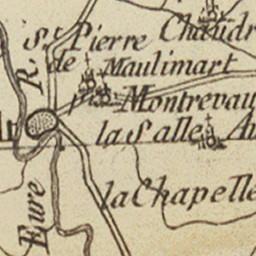 St. Pierre
de Maulimart
Montrevau
la Salle
Au
la Chapelle
R.
Eure
Chaudr